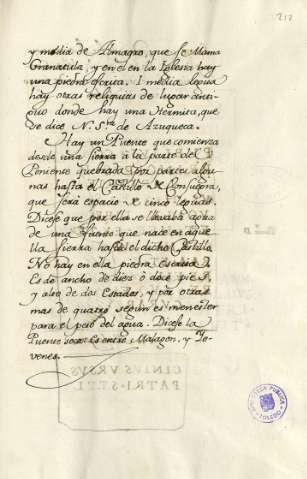 212
y media de Almagro, que se llama
Granatula, y en el en la Iglesia hay
una piedra escrita. I media legua
hay otras reliquias de lugar anti-
guo donde hay una Hermita, que
se dice N. Sra de Azuqueca.
Hay un Puente que comienza
desde una sierra a la parte del
Poniente quebrada por partes algu-
nas hasta el Castillo de Consuegra,
que será espacio de cinco leguas.
Dicese que por ella se llevaba agua
de una fuente que nace en aque-
lla sierra hasta el dicho Castillo
No hay en ella piedra Escrita
Es de ancho de diez ó doce pies,
y alto de dos Estados, y por otras
mas de quatro segun es menester
para el peso del agua. Dicese la
Puente seca. Es entre Malagon, y Ye-
venes.
CINIUS URSUS
PATRI·STEL
BIBLIOTECA PUBLICA
TOLEDO